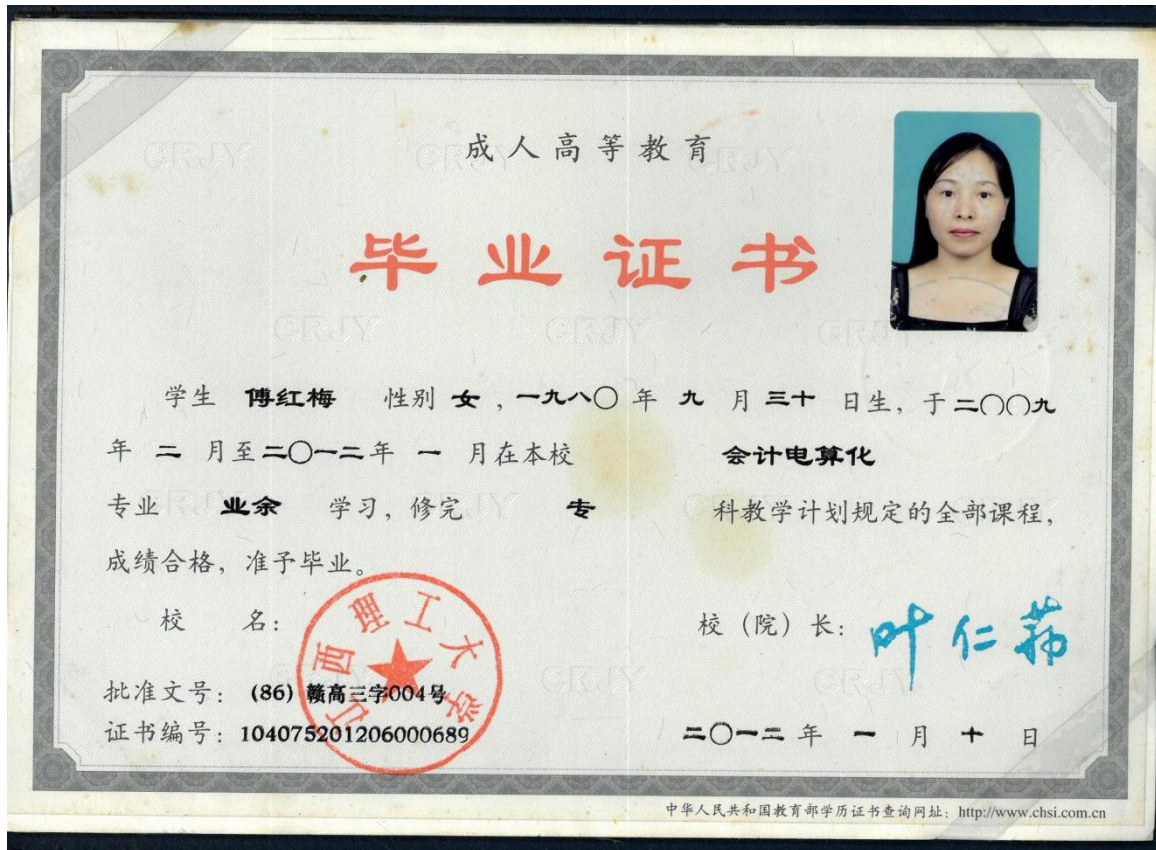 成人高等教育
毕业证书
学生 傅红梅 性别 女，一九八〇 年 九 月 三十 日生，于二〇〇九
年 二 月至二〇一二年 一 月在本校 会计电算化
专业 业余 学习，修完 专 科教学计划规定的全部课程，
成绩合格，准予毕业。
校 名： 江西理工大学
校（院）长： 叶仁荪
批准文号：(86) 赣高三字004号
证书编号：104075201206000689
二〇一二 年 一 月 十 日
中华人民共和国教育部学历证书查询网址：http://www.chsi.com.cn